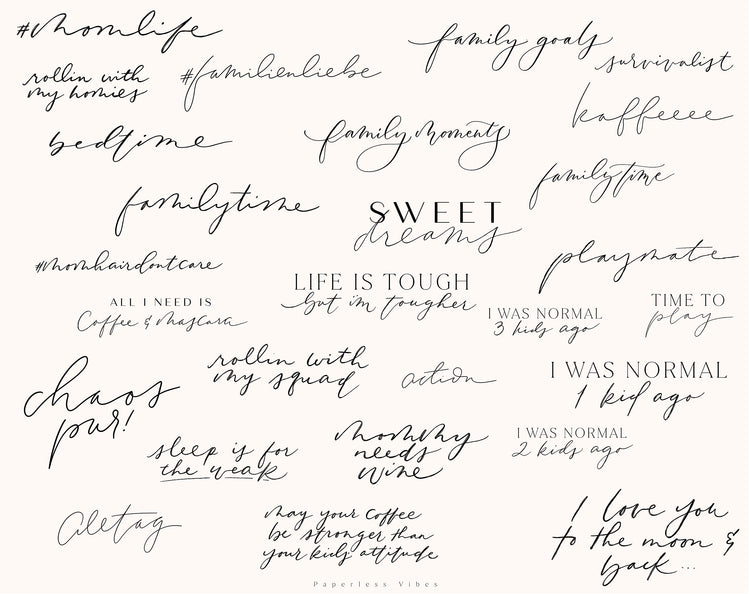 #momlife
family goals
rollin with
my homies
#familienliebe
survivalist
kaffeeee
bedtime
family moments
familytime
familytime
SWEET
dreams
#momhairdontcare
playmate
LIFE IS TOUGH
but im tougher
ALL I NEED IS
Coffee & Mascara
I WAS NORMAL
3 kids ago
TIME TO
play
chaos
pur!
rollin with
my squad
action
I WAS NORMAL
1 kid ago
sleep is for
the weak
mommy
needs
wine
I WAS NORMAL
2 kids ago
may your coffee
be stronger than
your kids attitude
I love you
to the moon &
back...
Paperless Vibes